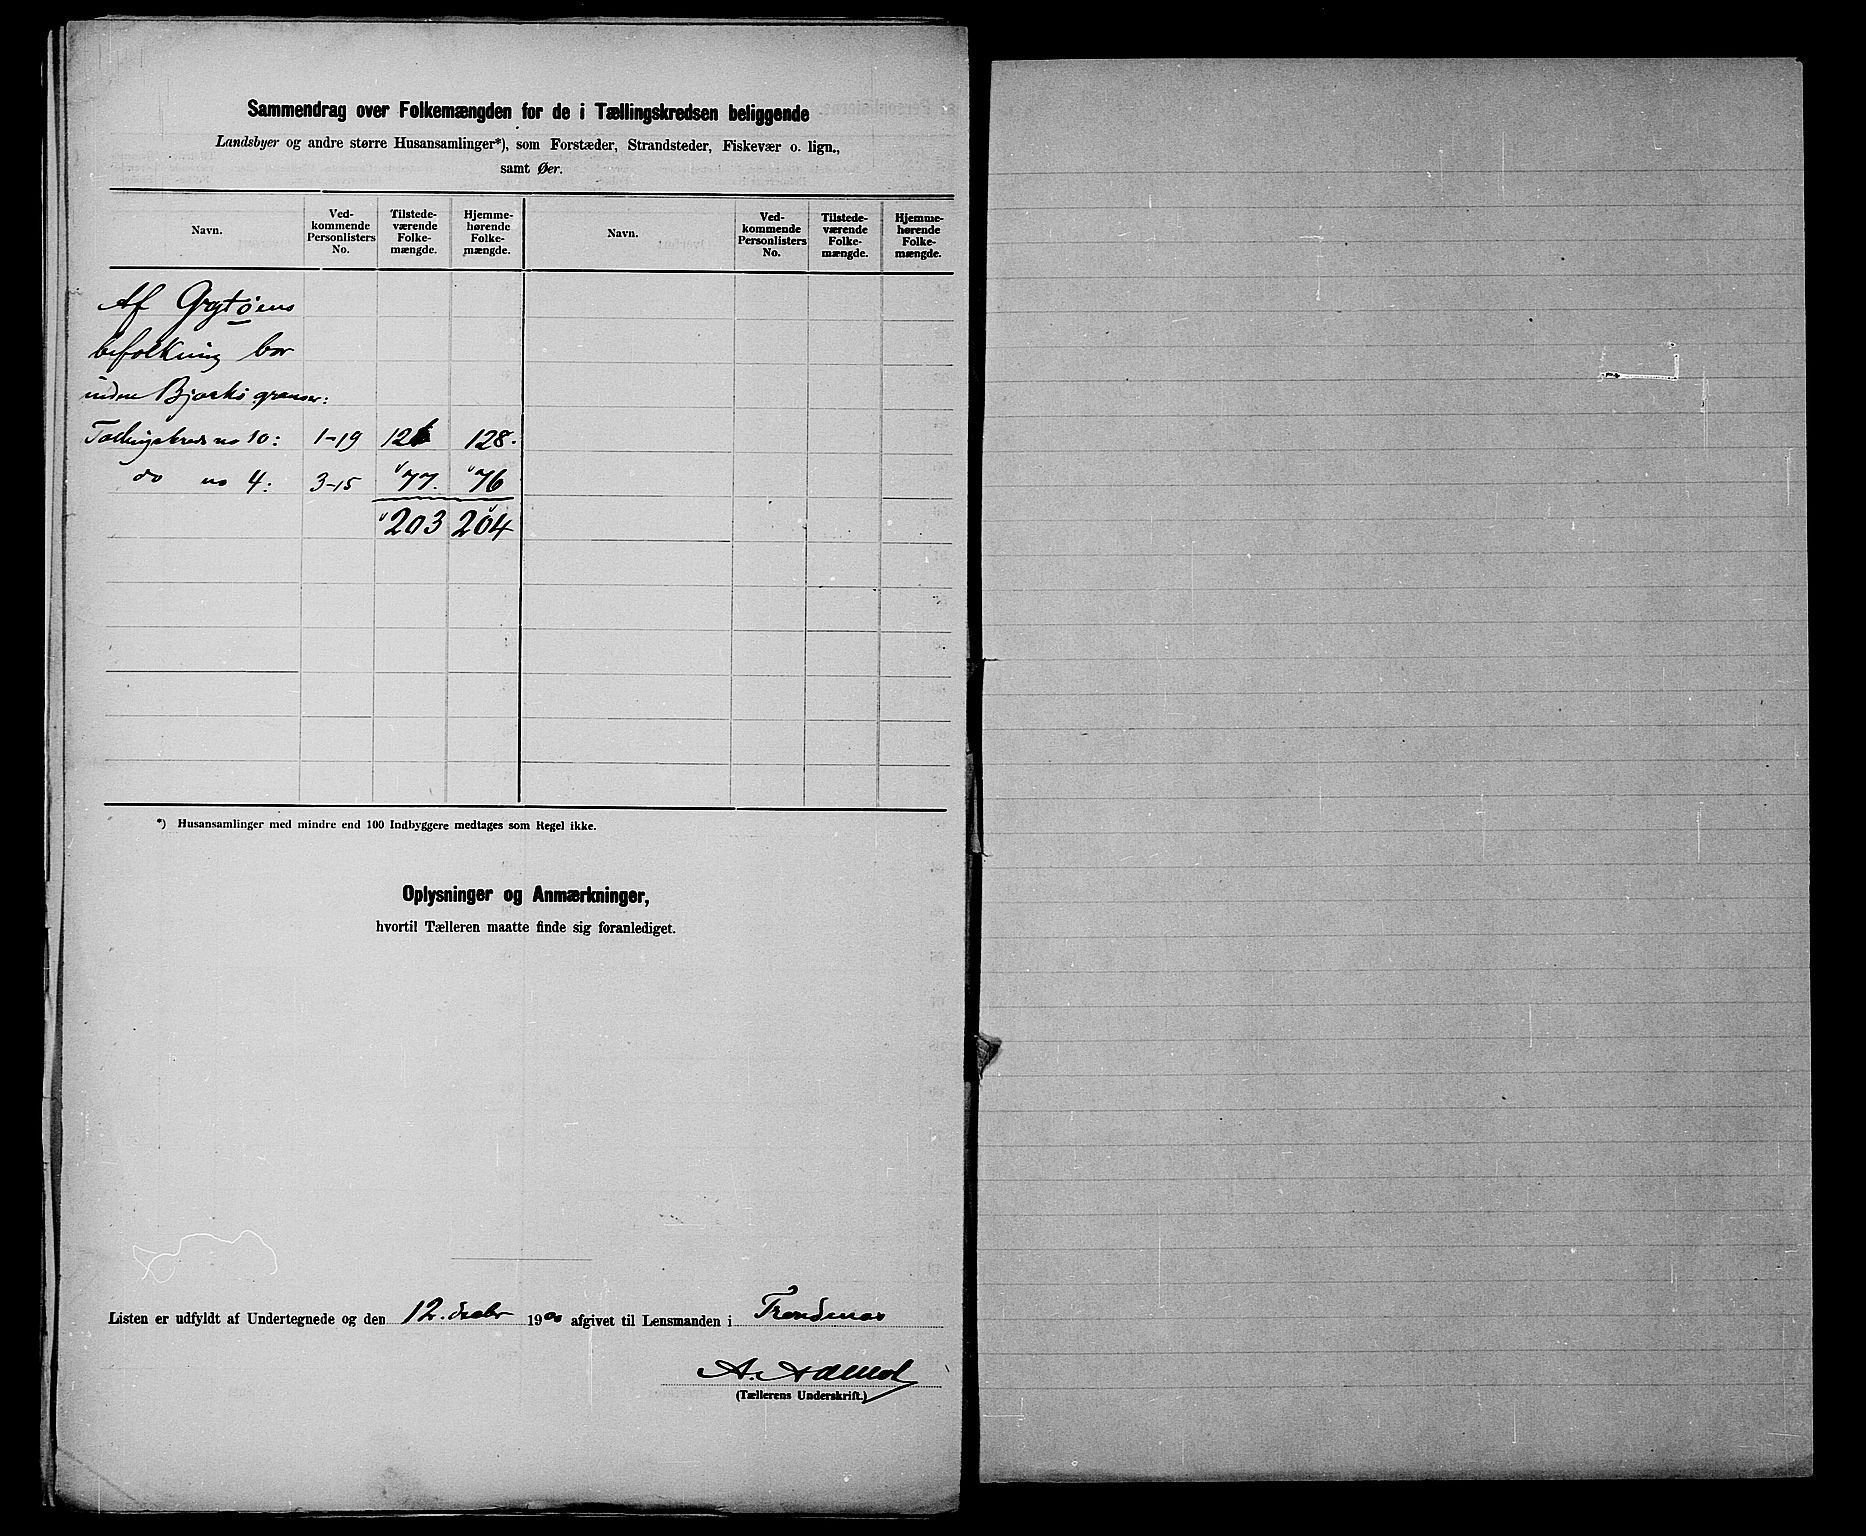 Sammendrag over Folkemængden for de i Tællingskredsen beliggende
Landsbyer og andre større Husansamlinger*), som Forstæder, Strandsteder, Fiskevær o. lign.,
samt Øer.
Navn. Ved-kommende Personlisters No. Tilstede-værende Folke-mængde. Hjemme-hørende Folke-mængde. Navn. Ved-kommende Personlisters No. Tilstede-værende Folke-mængde. Hjemme-hørende Folke-mængde.
Af Grytøens
befolkning bor
inden Bjarkø grænser:
Tællingskreds no 10: 1-19 126 128.
do no 4: 3-15 77. 76
203 204
*) Husansamlinger med mindre end 100 Indbyggere medtages som Regel ikke.
Oplysninger og Anmærkninger,
hvortil Tælleren maatte finde sig foranlediget.
Listen er udfyldt af Undertegnede og den 12. decbr 1900 afgivet til Lensmanden i Trondenæs
A.
(Tællerens Underskrift.)